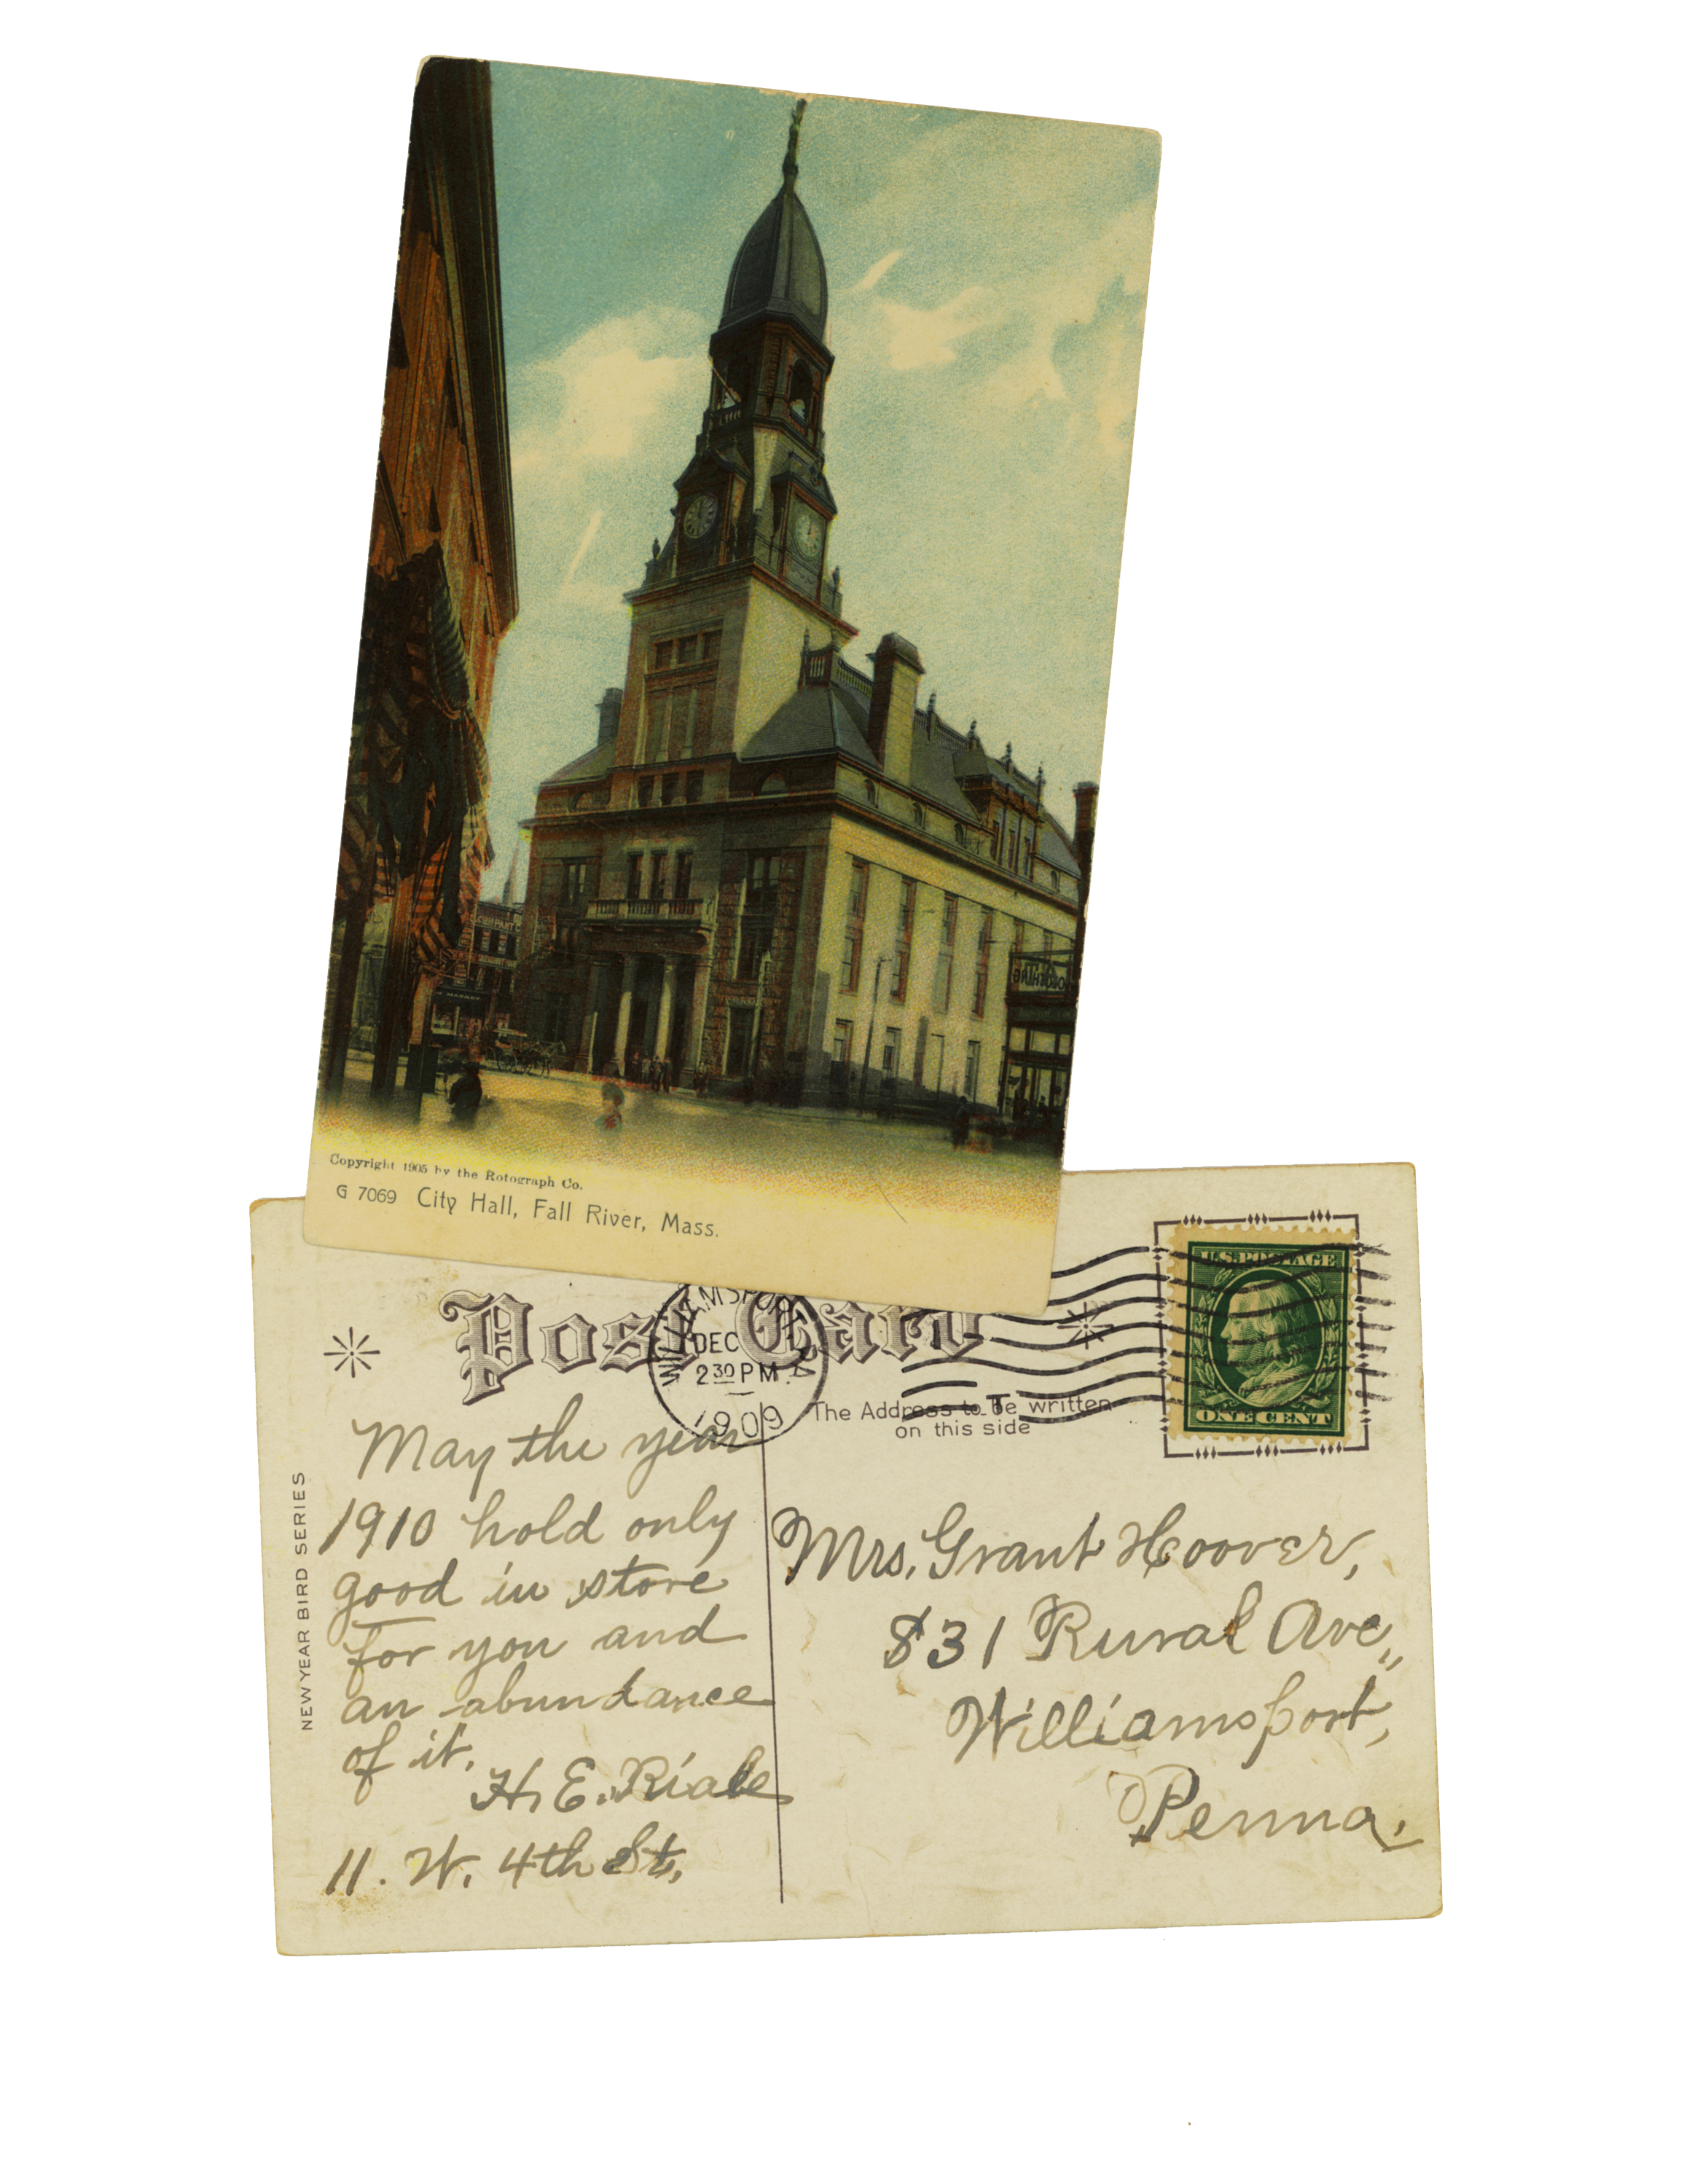 Copyright 1905 by the Rotograph Co.
G 7069 City Hall, Fall River, Mass.
Post Card
WILLIAMSPORT, PA.
DEC
2 30 PM
1909
U.S. POSTAGE
ONE CENT
The Address to be written
on this side
NEW YEAR BIRD SERIES
May the year
1910 hold only
good in store
for you and
an abundance
of it.
H. E. Riale
11. W. 4th St.
Mrs. Grant Hoover,
831 Rural Ave.,
Williamsport,
Penna.